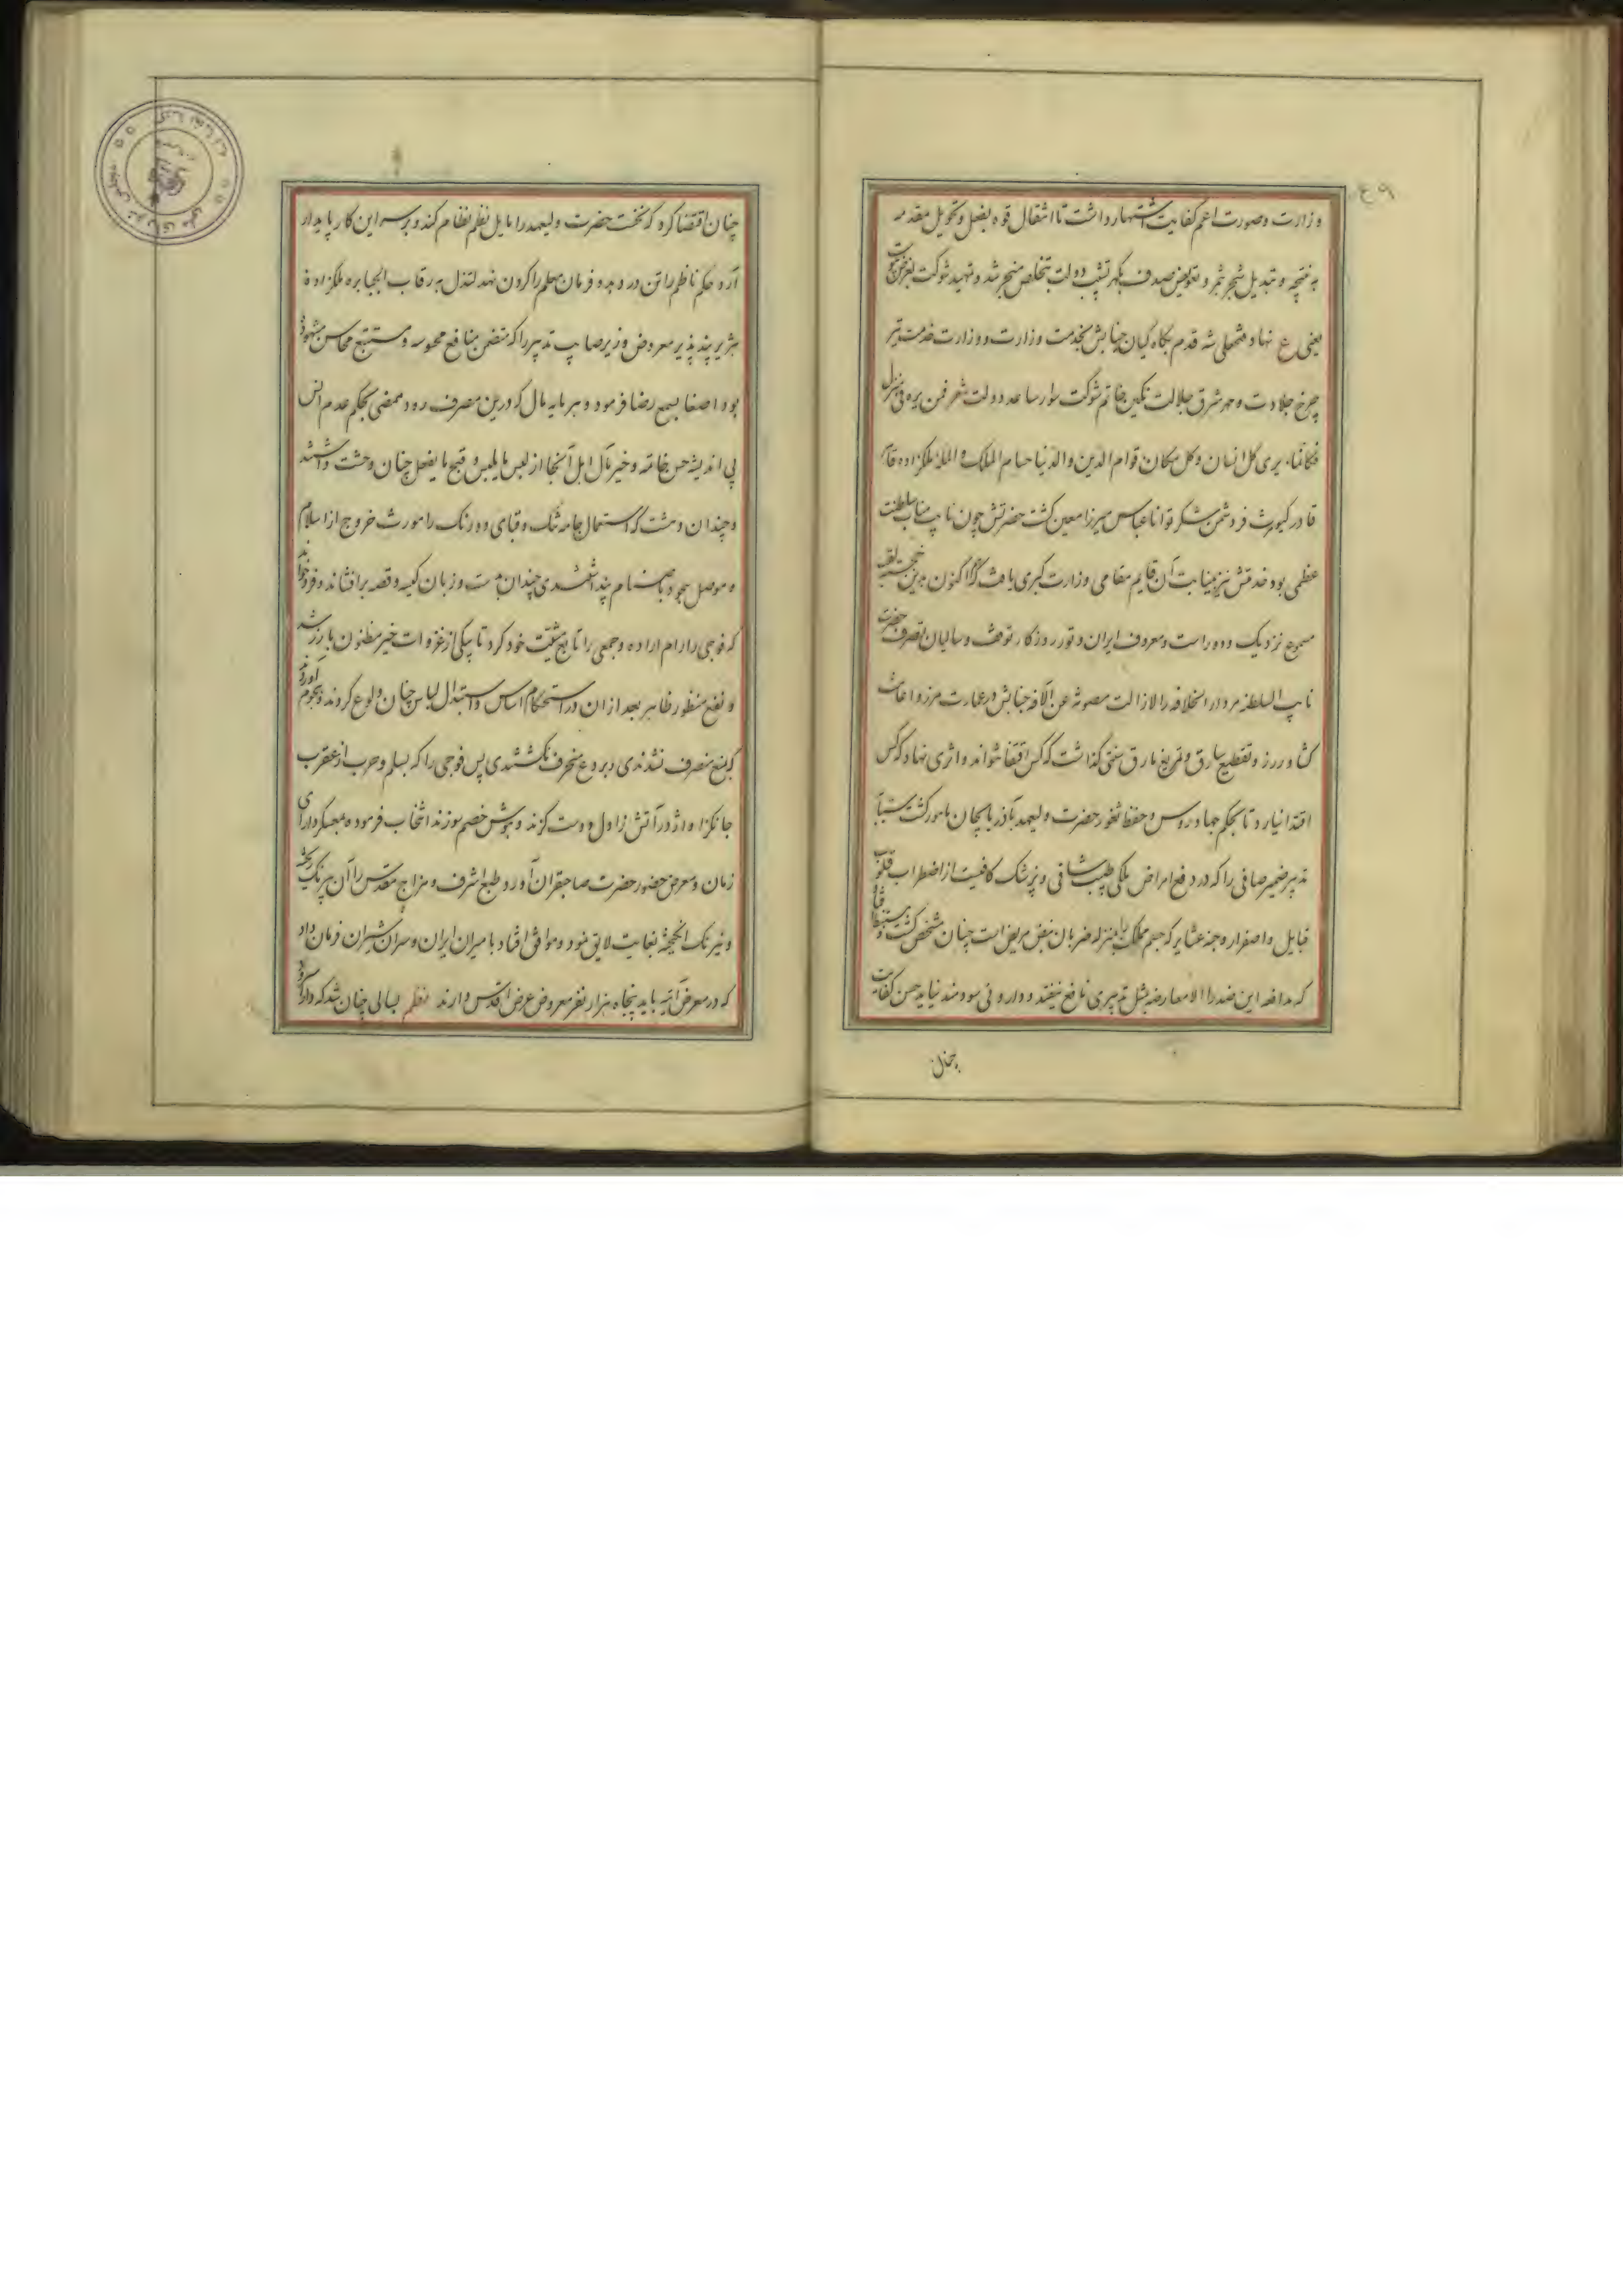 وزارت و صورت اعم کفایت اشتهار داشت تا انتقال قوه بفعل و تحویل مقدمه
به نتیجه و تبدیل شجر بثمر و تعویض صدف بگهر تشبیب دولت بتخلص منجر شد و تمهید شوکت
یعنی ع نهاد مصطفی شه قدم بگاه کیان جنابش بخدمت وزارت و وزارت خدمت
چرخ جلادت و مهر شرق جلالت نگین خاتم شوکت سوار ساعد دولت شعر فمن یره فی منزل
فکانما یری کل انسان و کل مکان قوام الدین و الدنیا حسام الملک و المله ملکزاده
قادر کیومرث فر دشمن شکر توانا عباس میرزا معین گشت حضرتش چون نایب مناب سلطنت
عظمی بود خدمتش نیز بنیابت آن قایم مقامی وزارت کبری یافت که تا اکنون بدین
مسموع نزدیک و دور است و معروف ایران و تور روزگار توقف و سالیان تصرف حضرت
نایب السلطنه در دار الخلافه لا زالت مصونة عن الآفه جنابش در عمارت مرز و اعانت
کشاورز و تقطیع سارق و تفریغ مارق سنتی گذاشت که کس اقتفا نتواند و اثری نهاد که کس
اقتدا نیارد تا بحکم جهاد روس و حفظ ثغور حضرت ولیعهد بآذربایجان مامور گشت
تدبیر ضمیر صافی را که در دفع امراض ملکی طبیب شافی و پزشک کافیست از اضطراب قلوب
قبایل و اصفرار وجنه عشایر که جسم مملکت را بمنزله ضربان نبض مریض است چنان مشخص گشت و
که مدافعه این ضد را الا معارضه بمثل تدبیری نافع نیفتد و داروئی سودمند نیاید حسن کفایت
چنان
چنان اقتضا کرد که نخست حضرت ولیعهد را مایل نظم نظام کند و بر سر این کار پایدار
آرد حکم ناظم را تن در دهد و فرمان معلم را گردن نهد لتذل به رقاب الجبابره ملکزاده
هژبر پند پذیر معروض وزیر صایب تدبیر را که متضمن منافع محسوسه و مستتبع محاسن مشهوده
بود اصغا بسمع رضا فرمود و سرمایه مال که درین مصرف رود ممضی بحکم عدم
بی اندیشه حسن خاتمه و خیر مآل اهل آنجا از لبس ما یلبس و قبح ما یفعل چنان وحشت داشتند
و چندان دهشت که استعمال جامه تنگ و قبای ده رنگ را مورث خروج از اسلام
و موصل سجود باصنام پنداشتندی چندان بدست و زبان کیسه و قصه برافشاند و فرو خواند
که فوجی را رام اراده و جمعی را تابع مشیت خود کرد تا بیکی از غزوات خیر مظنون بارز شد
و نفع منظور ظاهر بعد از آن در استحکام اساس و استبدال لباس چنان ولوع کردند و هجوم آوردند
که بمنع منصرف نشدندی و بردع منحرف نگشتندی پس فوجی را که بسلم و حرب از عقرب
جانگزا و اژدر آتش زا اول دوست گزند و بجوشش خصم سوزند انتخاب فرموده بمعسکر دارای
زمان و معرض حضور حضرت صاحبقران آورد و طبع اشرف و مزاج مقدس را آن بیرنگ ریخته
و نیرنگ انگیخته بغایت لایق نمود و موافق افتاد با میران ایران و سران شیران فرمان داد
که در معرض آتیه باید پنجاه هزار نفر معروض عرض اقدس دارند نظم بسالی چنان شد که دادگر